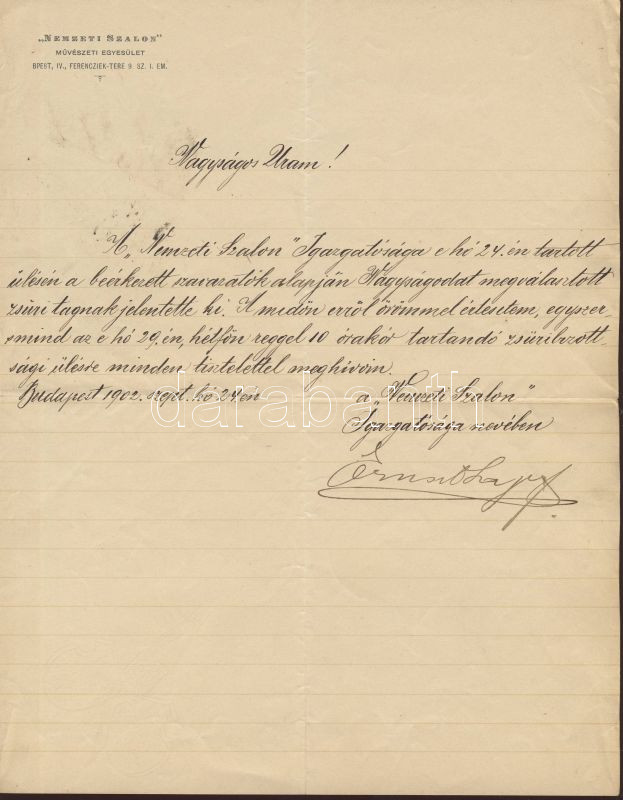 „NEMZETI SZALON"
MŰVÉSZETI EGYESÜLET
BPEST, IV., FERENCZIEK-TERE 9. SZ. I. EM.
Nagyságos Uram!
A „Nemzeti Szalon" Igazgatósága e hó 24.-én tartott
ülésén a beérkezett szavazatok alapján Nagyságodat megválasztott
zsüri tagnak jelentette ki. A midőn erről örömmel értesetem, egyszer-
smind az e hó 29,én, hétfőn reggel 10 órakor tartandó zsüribizott-
sági ülésre minden tisztelettel meghivom.
Budapest 1902. szept. hó 24-én
a „Nemzeti Szalon"
Igazgatósága nevében
Ernst Lajos
darabanth